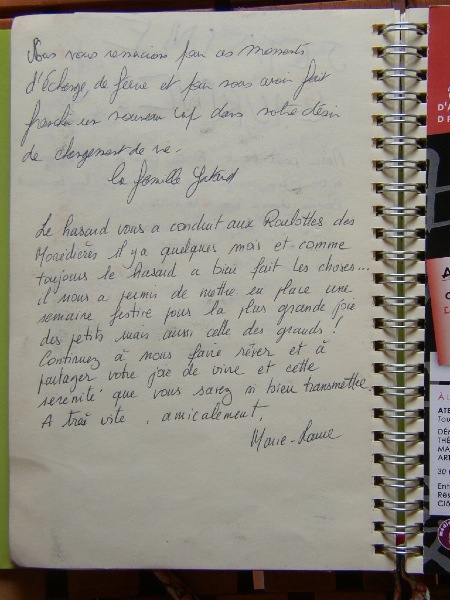 Nous vous remercions pour ces moments
d'échange, de ferie et pour nous avoir fait
franchir un nouveau cap dans notre désir
de changement de vie.
la famille
Le hasard vous a conduit aux Roulottes des
il y a quelques mois et comme
toujours le hasard a bien fait les choses...
il nous a permis de mettre en place une
semaine festive pour la plus grande joie
des petits mais aussi celle des grands !
Continuez à nous faire rêver et à
partager votre joie de vivre et cette
sérénité que vous savez si bien transmettre
A très vite, amicalement,
Marie-Laure
D'A
A
ATE
Tou
DÉ
THÉ
MA
ART
30
Ent
Rés